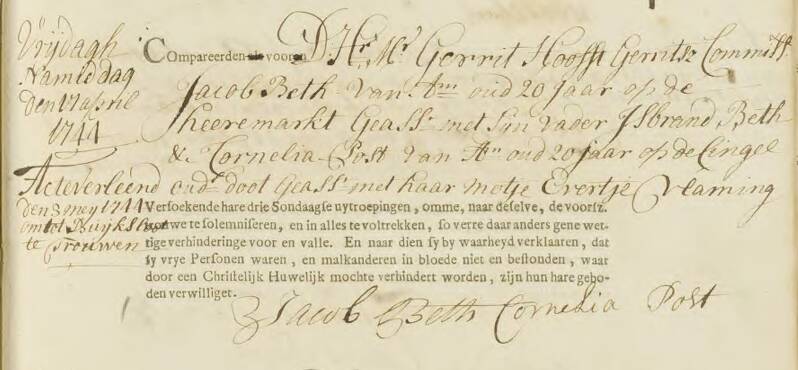 Vrijdagh
Namiddag
den 17 april
1744
Acte verleend
den 3 meij 1744
om tot Buijksloot
te trouwen
Compareerden als vooren D. Hr. Mr. Gerrit Hooft Gerritsz Commiss.
Jacob Beth van Am oud 20 Jaar op de
heeremarkt Geasst. met sijn vader IJsbrand Beth
& Cornelia Post van An oud 20 Jaar op de Cingel
oud. doot Geasst. met haar motje Evertje Vlaming
Versoekende hare drie Sondaagse uytroepingen, omme, naar deselve, de voorsz.
trouwe te solemniseren, en in alles te voltrekken, so verre daar anders gene wet-
tige verhinderinge voor en valle. En naar dien sy by waarheyd verklaarden, dat
sy vrye Personen waren, en malkanderen in bloede niet en bestonden, waar
door een Christelijk Huwelijk mochte verhindert worden, zijn hun hare gebo-
den verwilliget.
Jacob Beth Cornelia Post